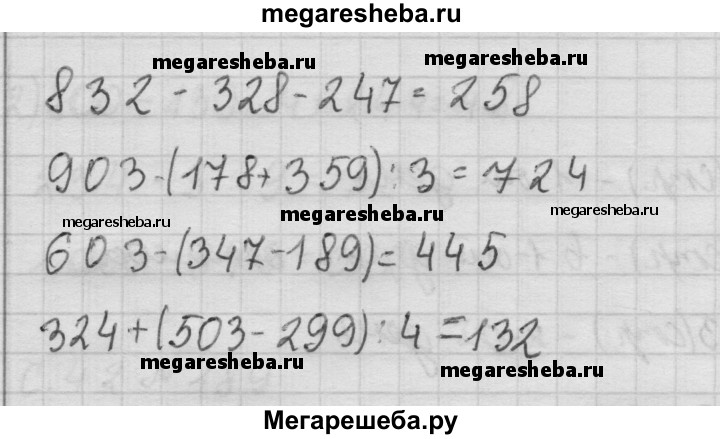 megaresheba.ru
megaresheba.ru megaresheba.ru
832 - 328 - 247 = 258
megaresheba.ru
903 - (178 + 359) : 3 = 724
megaresheba.ru megaresheba.ru megaresheba.ru
603 - (347 - 189) = 445
324 + (503 - 299) : 4 = 132
megaresheba.ru megaresheba.ru
Мегарешеба.ру